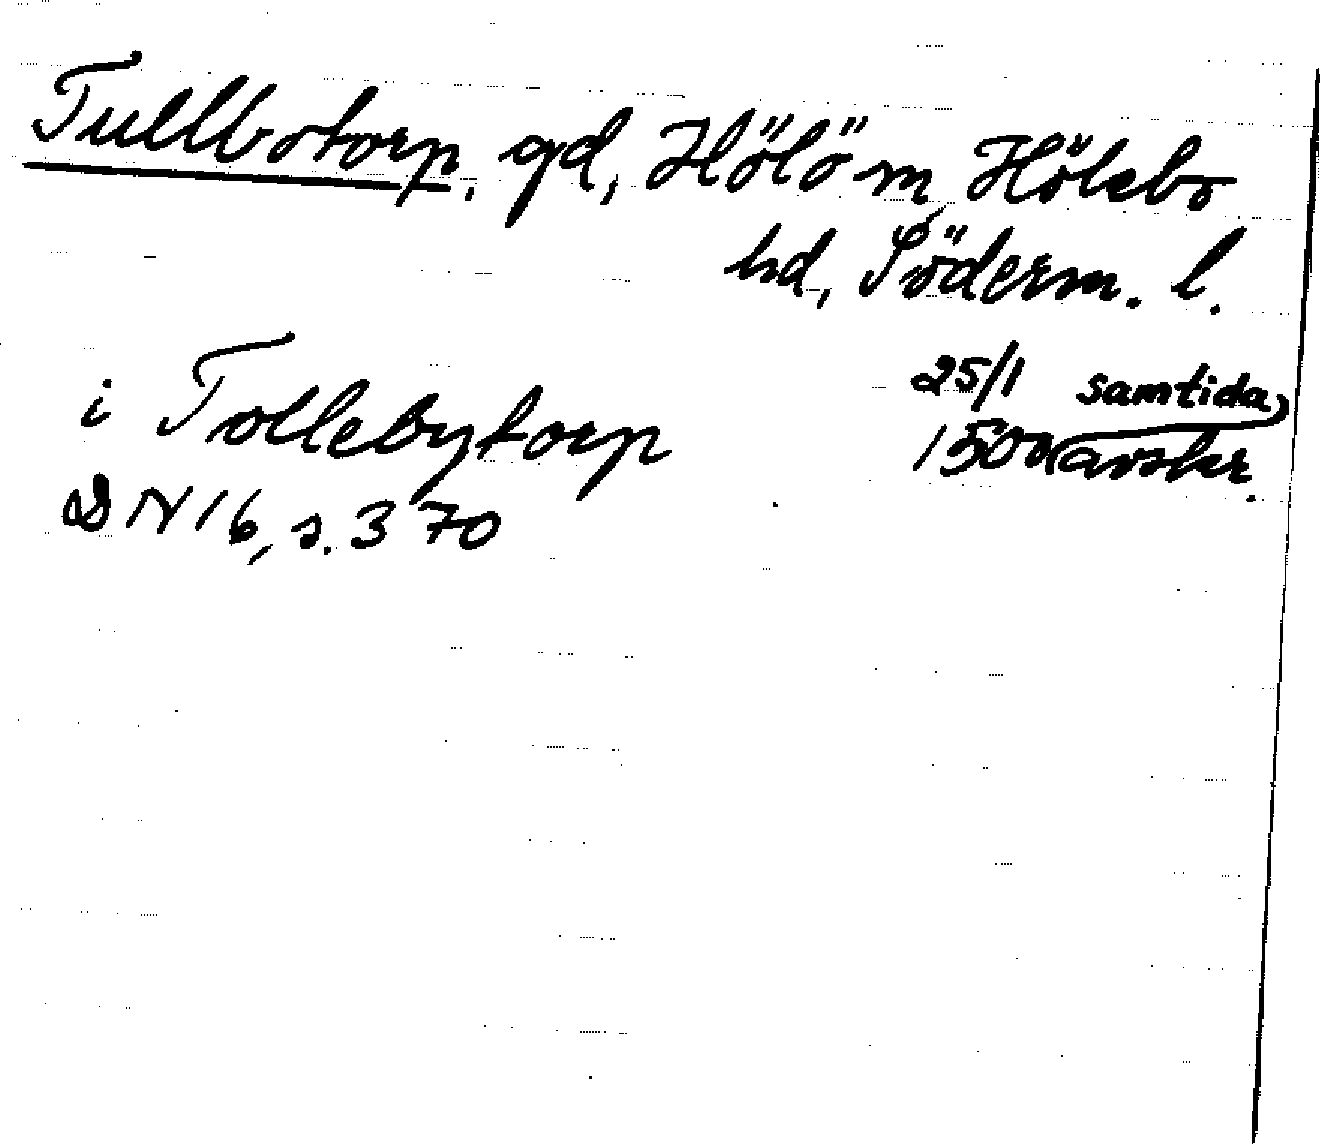 Tullbotorp, gd, Hölö sn, Hölebo
hd, Söderm. l.
i Tollebytorp 25/1 samtida
1500 avskr.
DN 16, s. 370